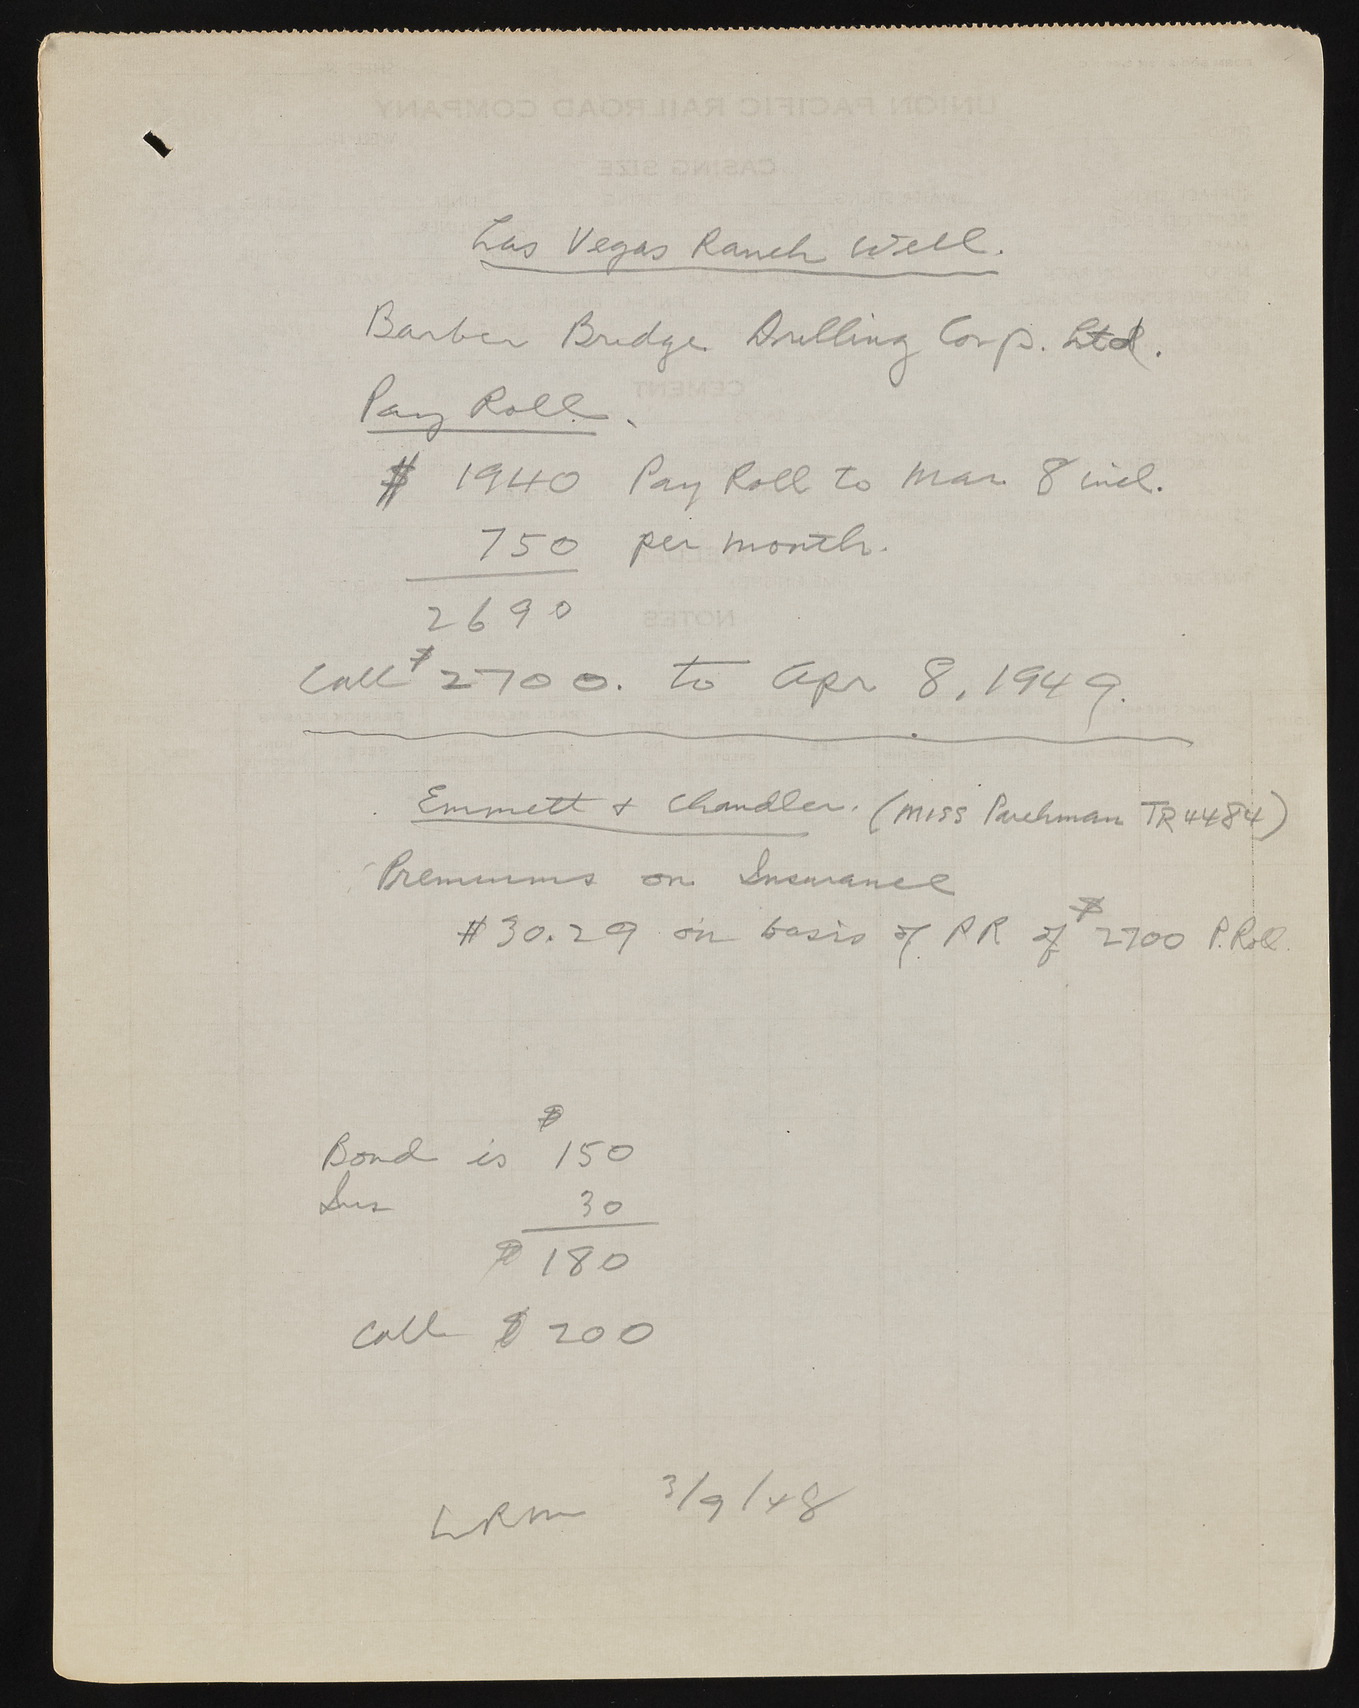 Las Vegas Ranch Well.
Barber Bridge Drilling Corp. Ltd.
Pay Roll.
$ 1940 Pay Roll to Mar 8 incl.
750 per month.
2690
Call $2700. to Apr 8, 1949.
Emmett & Chandler. (Miss Parchman TR 4484)
Premiums on Insurance
#30.29 on basis of PR of $2700 P.Roll.
Bond is $150
Ins 30
$180
Call $200
LRM 3/9/48
UNION PACIFIC RAILROAD COMPANY
CASING SIZE
CEMENT
NOTES